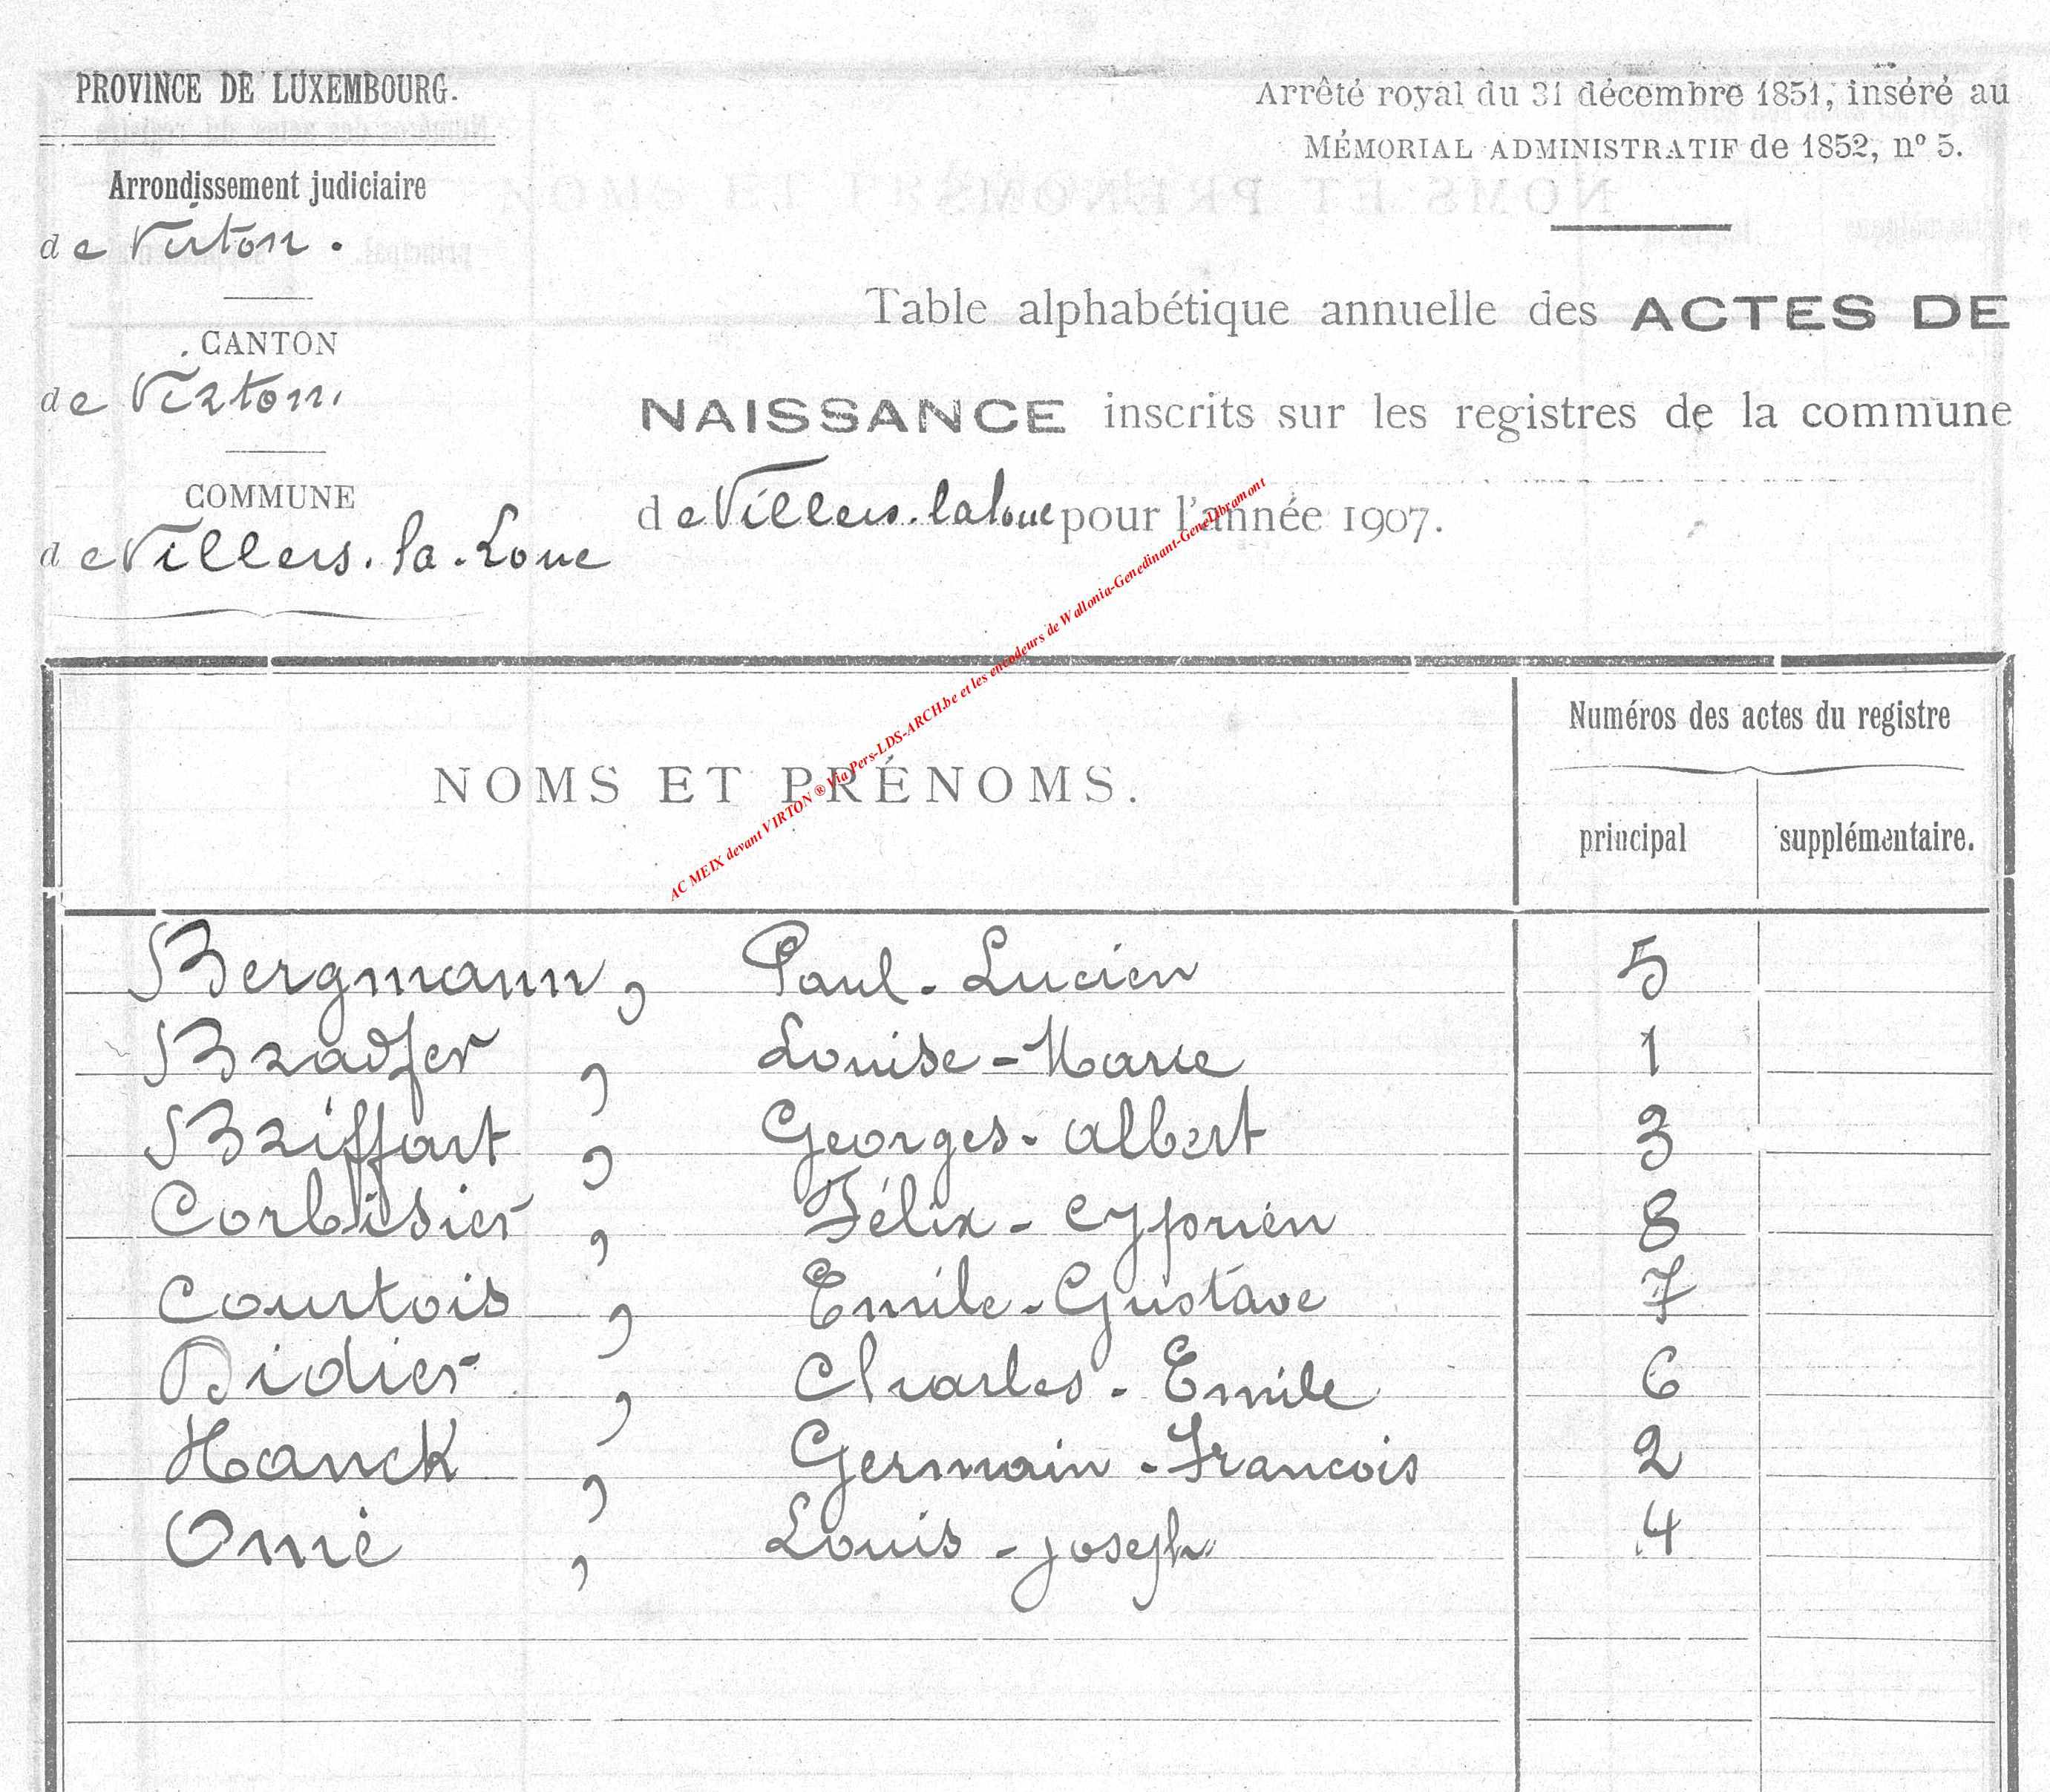 PROVINCE DE LUXEMBOURG.
Arrondissement judiciaire
de Virton.
CANTON
de Virton.
COMMUNE
de Villers.la.Loue
Arrêté royal du 31 décembre 1851, inséré au
MÉMORIAL ADMINISTRATIF de 1852, nº 5.
Table alphabétique annuelle des ACTES DE
NAISSANCE inscrits sur les registres de la commune
de Villers.laloue pour l'année 1907.
AC MEIX devant VIRTON ® Via Pers-LDS-ARCH.be et les encodeurs de Wallonia-Genedinant-GeneLibramont
NOMS ET PRÉNOMS.
Numéros des actes du registre
principal
supplémentaire.
Bergmann, Paul-Lucien 5
Bradfer, Louise-Marie 1
Briffart, Georges-Albert 3
Corbisier, Félix-Cyprien 8
Courtois, Emile-Gustave 7
Didier, Charles-Emile 6
Hanck, Germain-Francois 2
Omé, Louis-joseph 4